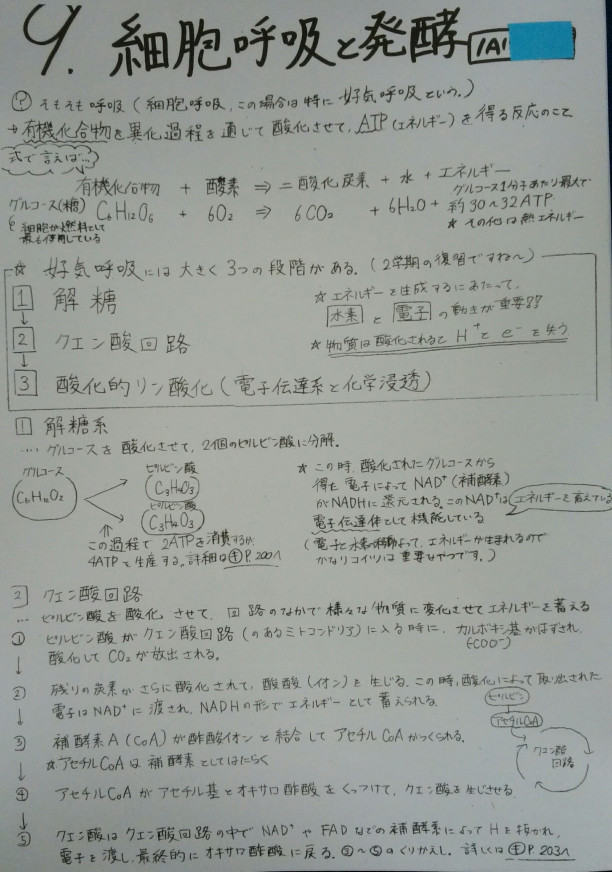 9. 細胞呼吸と発酵 1A1
? そもそも呼吸(細胞呼吸、この場合は特に好気呼吸という。)
→ 有機化合物を異化過程を通じて酸化させて、ATP(エネルギー)を得る反応のこと
式で言えば…
有機化合物 + 酸素 ⇒ 二酸化炭素 + 水 + エネルギー
グルコース(糖) C6H12O6 + 6O2 ⇒ 6CO2 + 6H2O +
グルコース1分子あたり最大で
約30〜32ATP
* その他は熱エネルギー
細胞が燃料として
最も使用している
☆ 好気呼吸には大きく3つの段階がある。(2学期の復習ですね〜)
1 解糖
↓
2 クエン酸回路
↓
3 酸化的リン酸化(電子伝達系と化学浸透)
☆ エネルギーを生成するにあたって、
水素 と 電子 の動きが重要??
☆ 物質は酸化されると H+ と e- を失う
1 解糖系
…. グルコースを酸化させて、2個のピルビン酸に分解。
グルコース
C6H12O2
ピルビン酸
C3H4O3
ピルビン酸
C3H4O3
この過程で 2ATPを消費するが、
4ATPを生産する。詳細は㊉P.200へ
* この時、酸化されたグルコースから
得た電子によってNAD+(補酵素)
がNADHに還元される。このNAD+は
エネルギーを蓄えている
電子伝達体として機能している
(電子と水素の移動よって、エネルギーが生まれるので
かなりコイツは重要なやつです。)
2 クエン酸回路
… ピルビン酸を酸化させて、回路のなかで様々な物質に変化させてエネルギーを蓄える
① ピルビン酸がクエン酸回路(のあるミトコンドリア)に入る時に、カルボキシ基がはずされ、
(-COO-)
↓ 酸化してCO2が放出される。
② 残りの炭素がさらに酸化されて、酸酸(イオン)を生じる。この時、酸化によって取り出された
↓ 電子はNAD+に渡され、NADHの形でエネルギーとして蓄えられる。
③ 補酵素A(CoA)が酢酸イオンと結合してアセチルCoAがつくられる。
↓ ☆アセチルCoAは補酵素としてはたらく
④ アセチルCoAがアセチル基とオキサロ酢酸をくっつけて、クエン酸を生じさせる。
↓
⑤ クエン酸はクエン酸回路の中でNAD+やFADなどの補酵素によってHを抜かれ、
電子を渡し、最終的にオキサロ酢酸に戻る。②〜⑤のくりかえし。詳しくは㊉P.203へ
ピルビン
アセチルCoA
クエン酸
回路